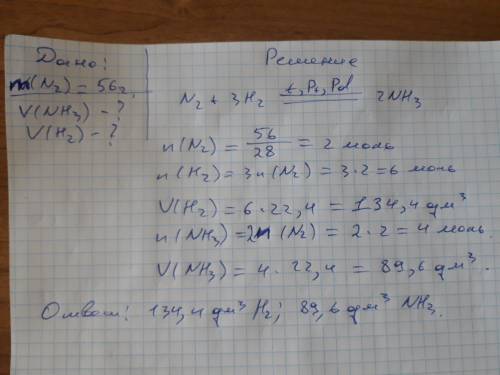 Дано:
m(N₂) = 56г.
V(NH₃) - ?
V(H₂) - ?
Решение
N₂ + 3H₂ t, Pt, Pd 2NH₃
n(N₂) = 56/28 = 2 моль
n(H₂) = 3n(N₂) = 3·2 = 6 моль
V(H₂) = 6·22,4 = 134,4 дм³
n(NH₃) = 2n(N₂) = 2·2 = 4 моль.
V(NH₃) = 4·22,4 = 89,6 дм³.
Ответ: 134,4 дм³ H₂; 89,6 дм³ NH₃.